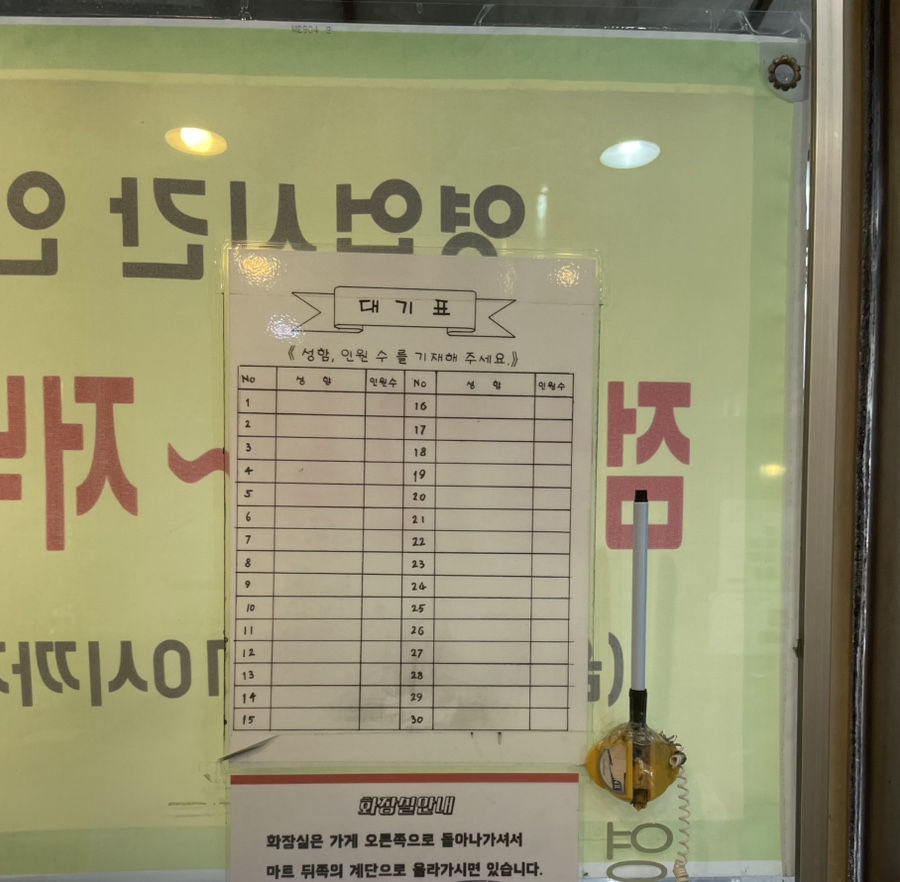 영업시간 안
점 ~ 저녁
10시까지
대 기 표
《 성함, 인원 수 를 기재해 주세요.》
No 성 함 인원수 No 성 함 인원수
1 16
2 17
3 18
4 19
5 20
6 21
7 22
8 23
9 24
10 25
11 26
12 27
13 28
14 29
15 30
화장실안내
화장실은 가게 오른쪽으로 돌아나가셔서
마트 뒤쪽의 계단으로 올라가시면 있습니다.
영